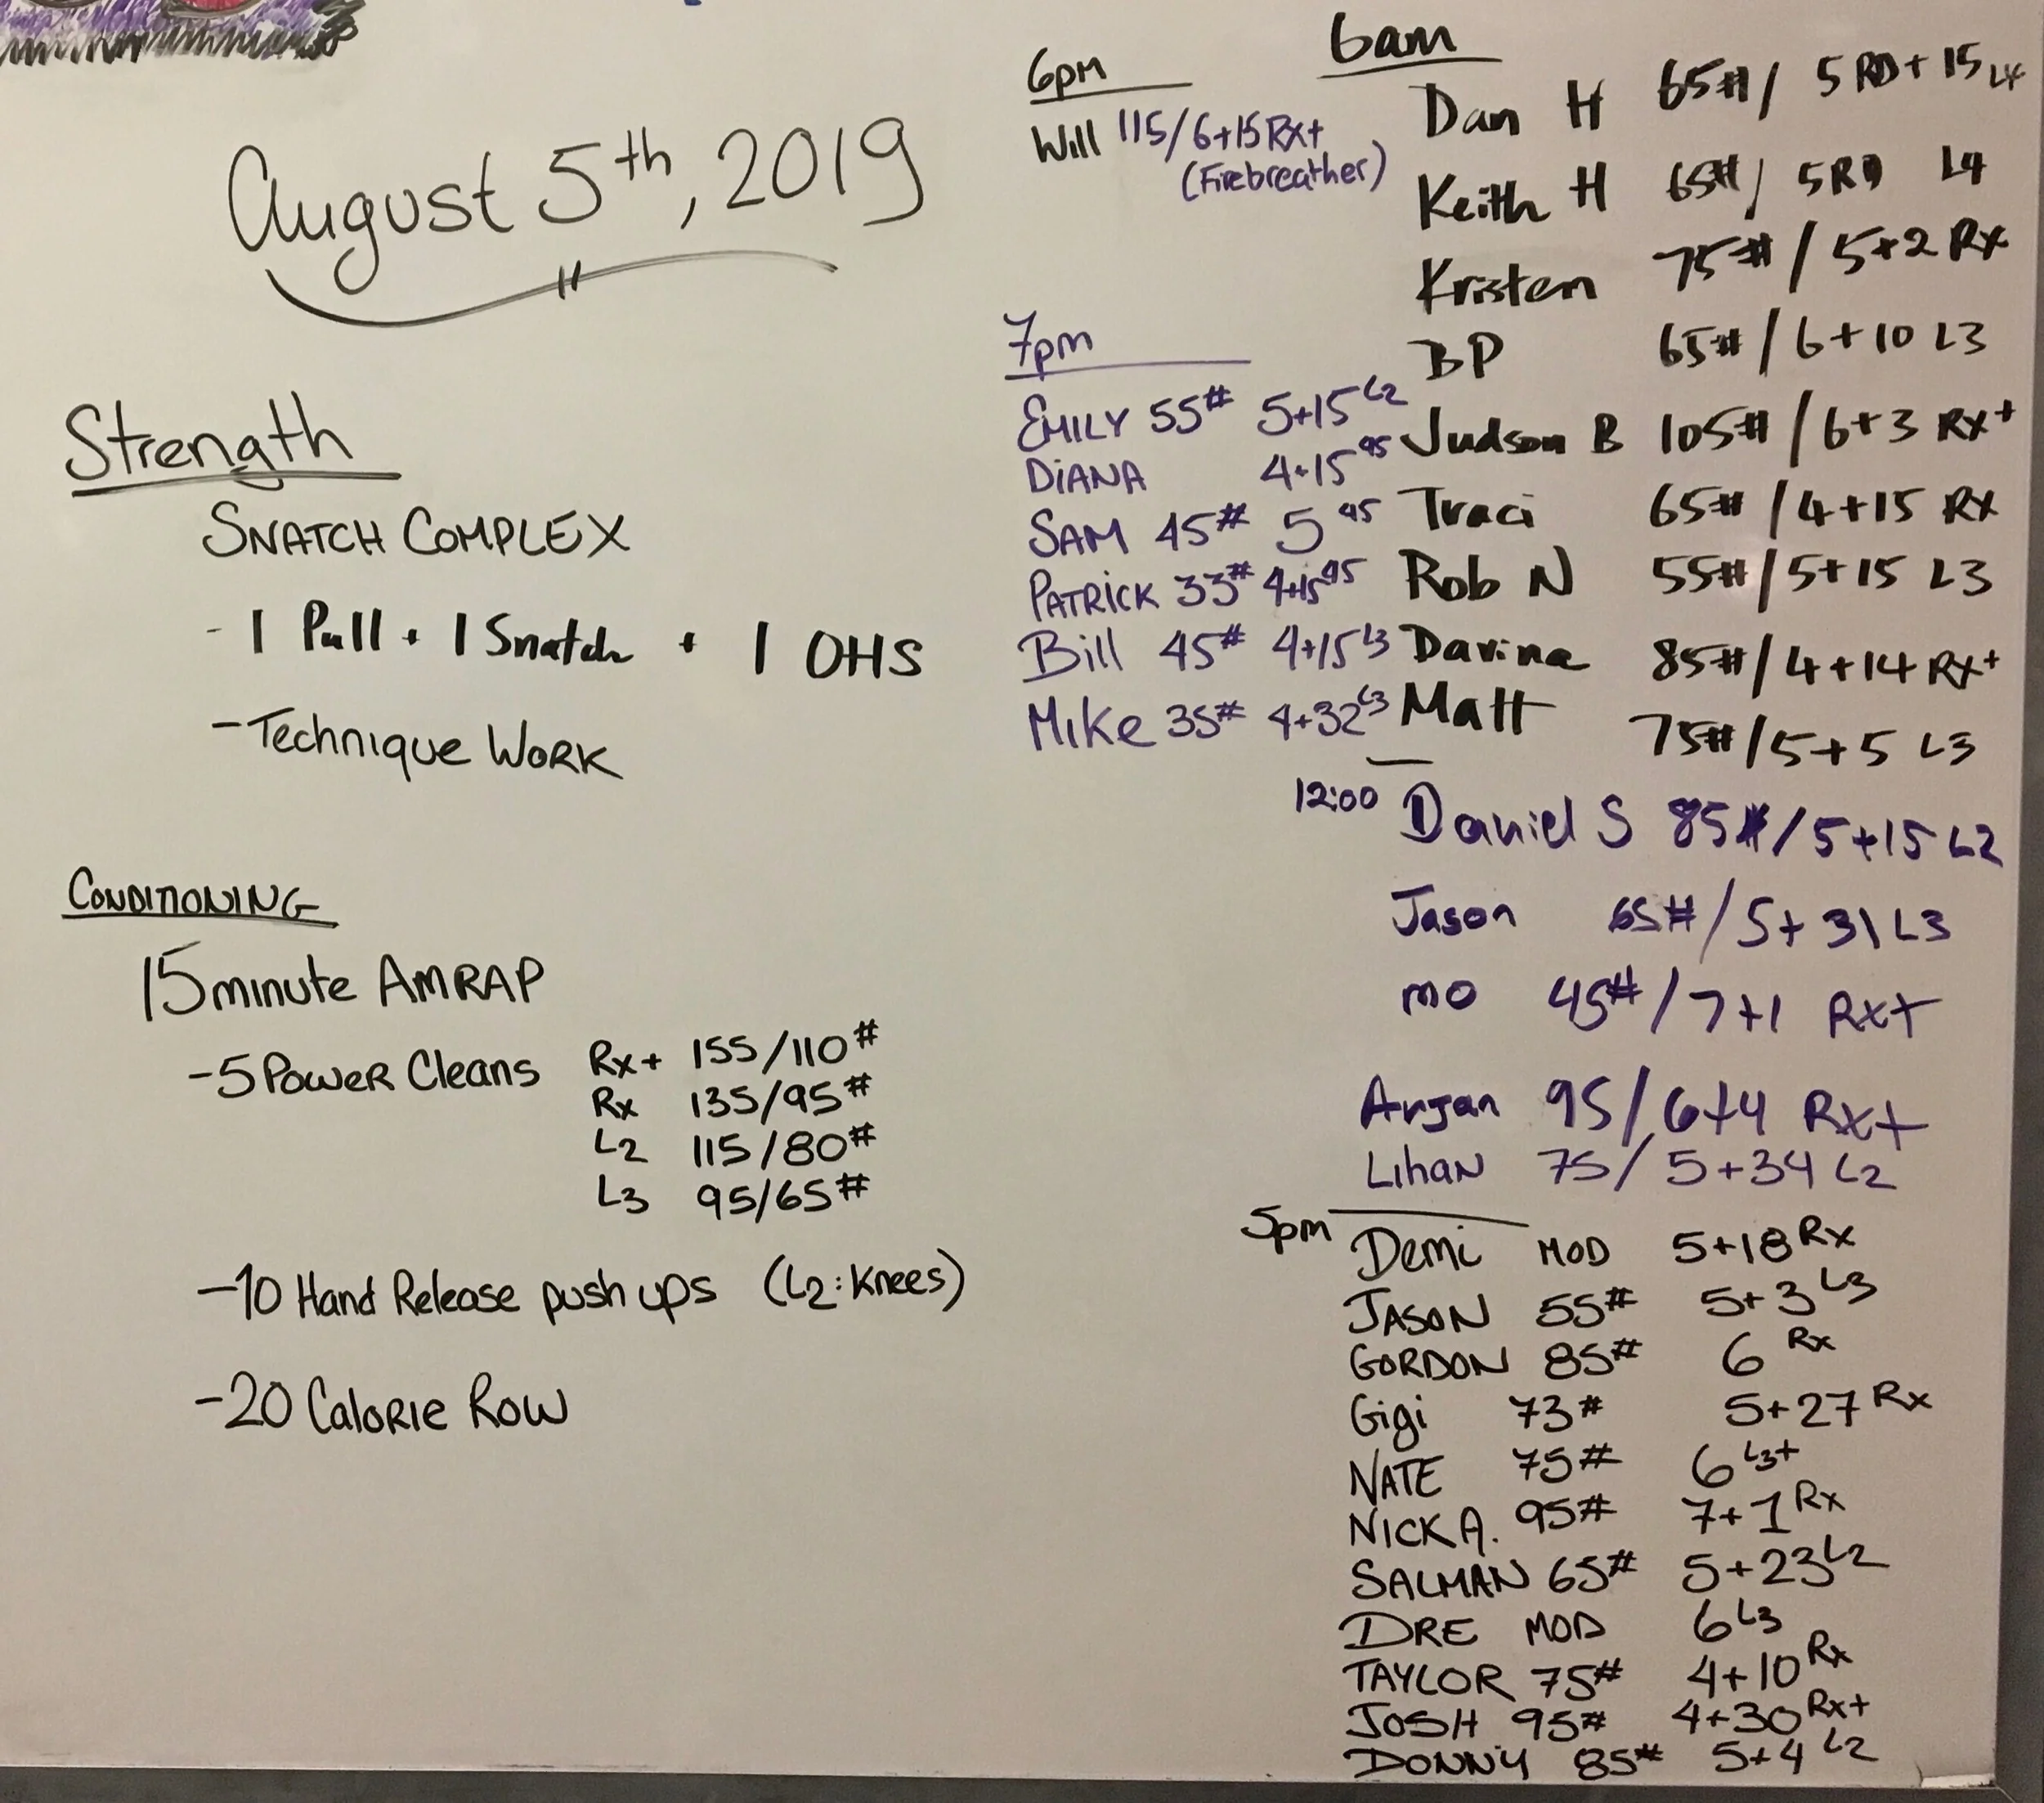 August 5th, 2019
Strength
SNATCH COMPLEX
- 1 Pull + 1 Snatch + 1 OHS
- Technique Work
CONDITIONING
15 minute AMRAP
- 5 Power Cleans
Rx+ 155/110#
Rx 135/95#
L2 115/80#
L3 95/65#
- 10 Hand Release push ups (L2: Knees)
- 20 Calorie Row
6pm
Will 115/6+15 Rx+
(Firebreather)
7pm
EMILY 55# 5+15 L2
DIANA 4+15 95
SAM 45# 5 45
PATRICK 33# 4+15 95
Bill 45# 4+15 L3
Mike 35# 4+32 L3
6am
Dan H 65#/ 5 RD + 15 L4
Keith H 65#/ 5 RD L4
Kristen 75#/ 5+2 Rx
BP 65#/ 6+10 L3
Judson B 105#/ 6+3 Rx+
Traci 65#/ 4+15 Rx
Rob N 55#/ 5+15 L3
Davina 85#/ 4+14 Rx+
Matt 75#/ 5+5 L3
12:00
Daniel S 85#/ 5+15 L2
Jason 65#/ 5+31 L3
mo 45#/ 7+1 Rx+
Arjan 95/ 6+4 Rx+
Lihan 75/ 5+34 L2
5pm
Demi MOD 5+18 Rx
JASON 55# 5+3 L3
GORDON 85# 6 Rx
Gigi 73# 5+27 Rx
NATE 75# 6 L3+
NICK A. 95# 7+1 Rx
SALMAN 65# 5+23 L2
DRE MOD 6 L3
TAYLOR 75# 4+10 Rx
JOSH 95# 4+30 Rx+
DONNY 85# 5+4 L2